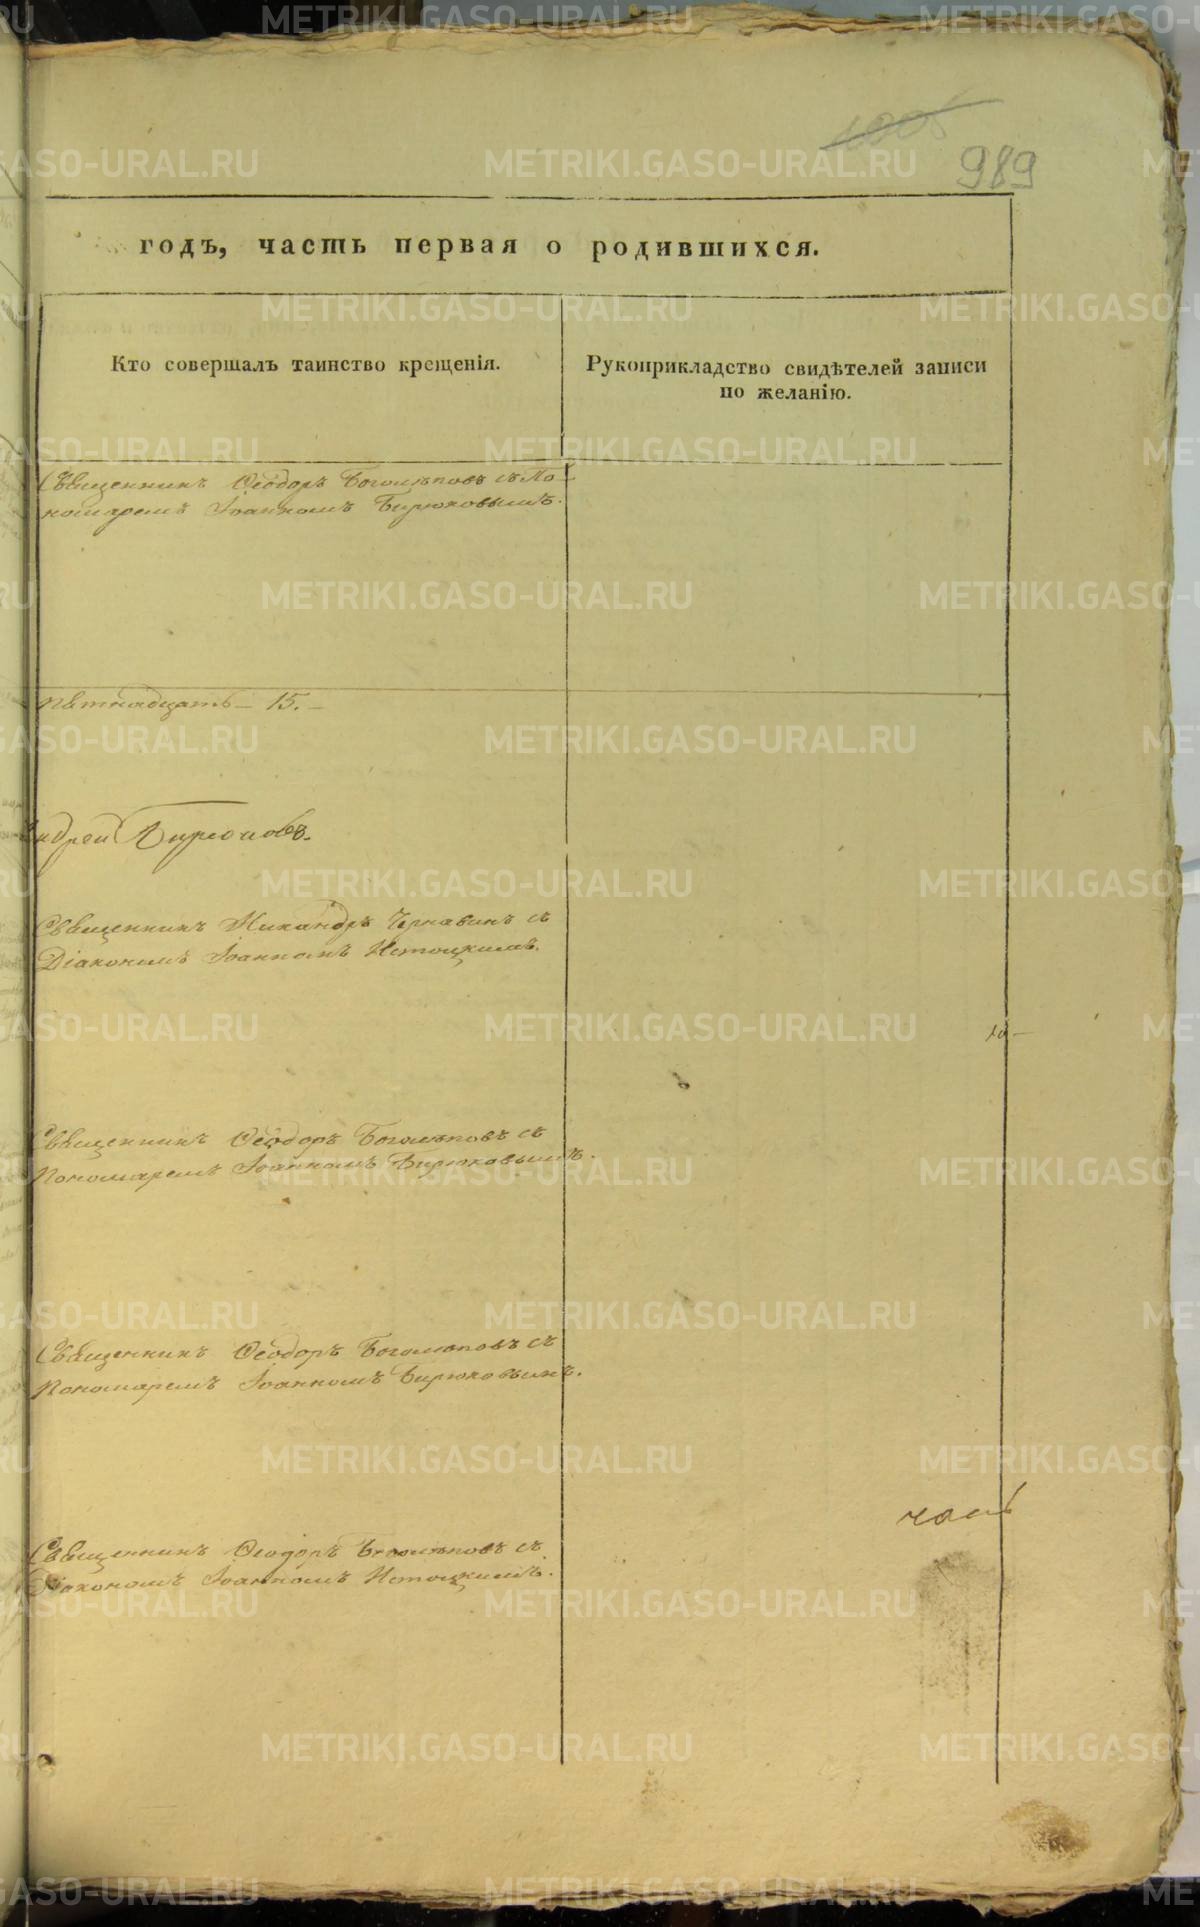 989
годъ, часть первая о родившихся.
Кто совершалъ таинство крещенія.
Рукоприкладство свидѣтелей записи
по желанію.
Священникъ Ѳеодоръ Боголѣповъ съ По-
номаремъ Іоанномъ Бирюковымъ.
пятнадцать – 15. –
Андрей Бирюковъ.
Священникъ Никандръ Чернавинъ съ
Діакономъ Іоанномъ Истоцкимъ.
10 –
Священникъ Ѳеодоръ Боголѣповъ съ
Пономаремъ Іоанномъ Бирюковымъ.
Священникъ Ѳеодоръ Боголѣповъ съ
Пономаремъ Іоанномъ Бирюковымъ.
часть
Священникъ Ѳеодоръ Боголѣповъ съ
Діакономъ Іоанномъ Истоцкимъ.
METRIKI.GASO-URAL.RU